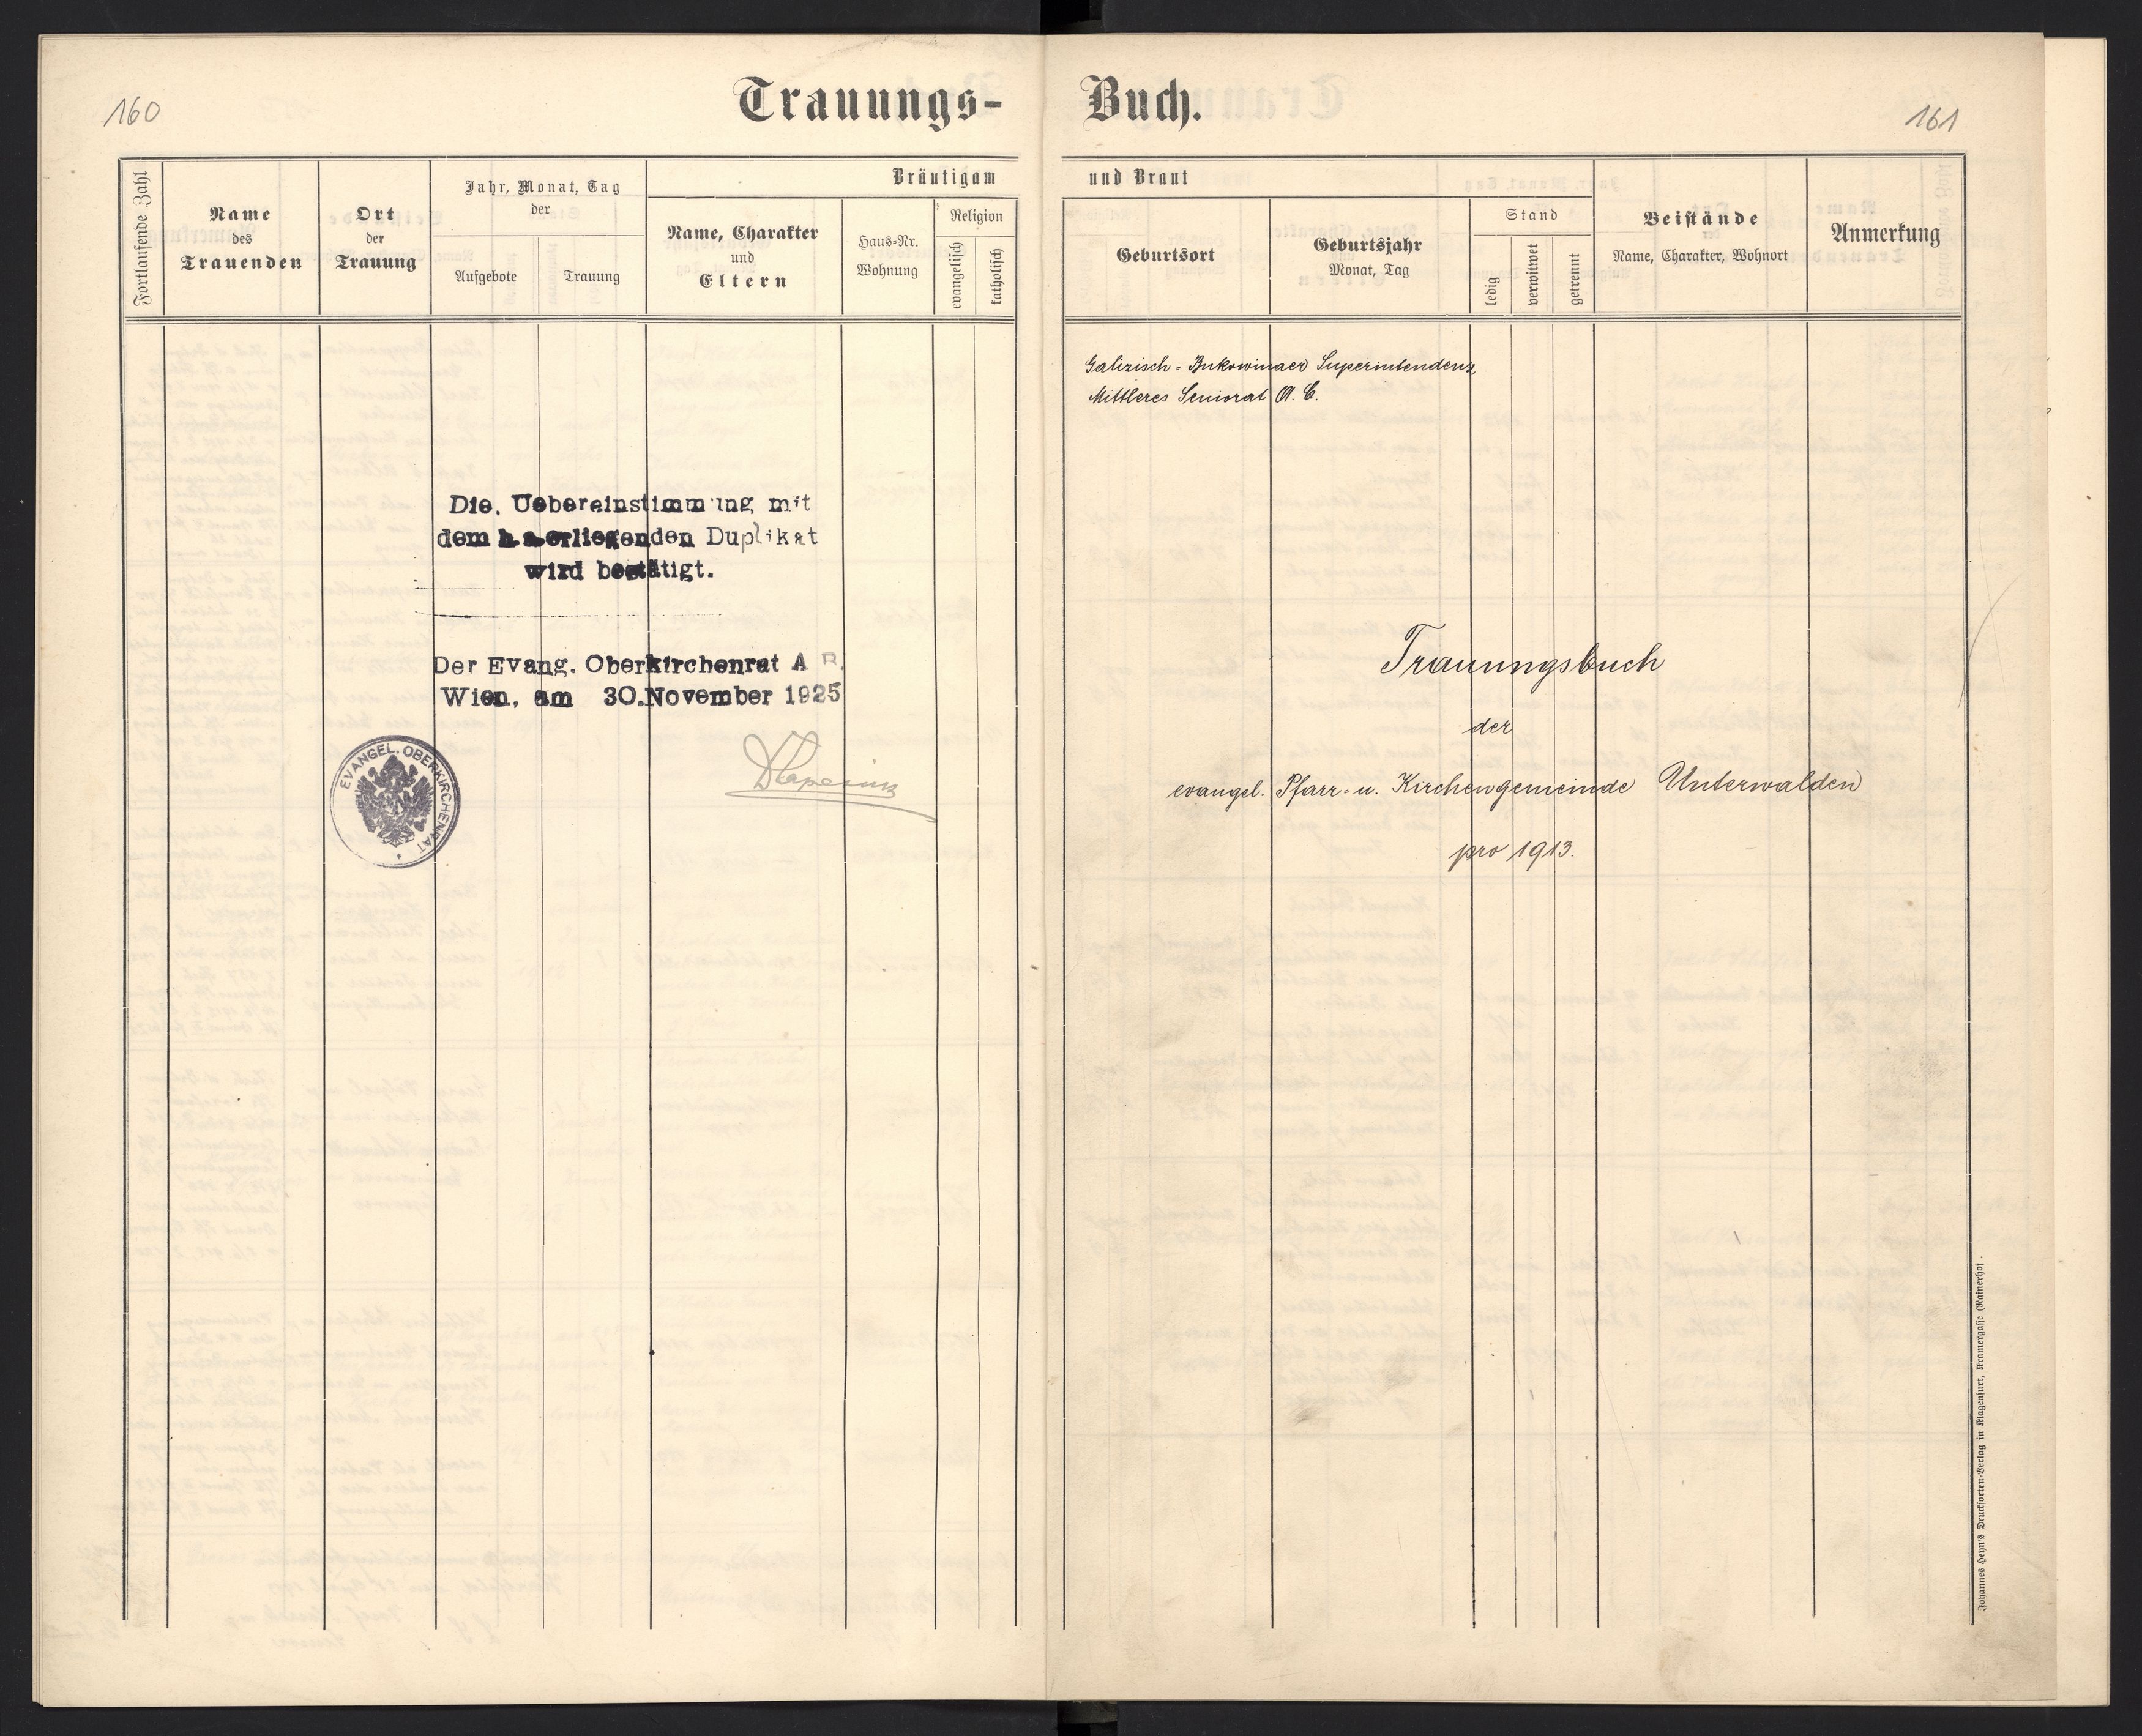 160
Trauungs-
Fortlaufende Zahl
Name
des
Trauenden
Ort
der
Trauung
Jahr, Monat, Tag
der
Aufgebote
Trauung
Bräutigam
Name, Charakter
und
Eltern
Haus-Nr.
Wohnung
Religion
evangelisch
katholisch
Die. Uebereinstimmung mit
dem h.a.erliegenden Duplikat
wird bestätigt.
Der Evang. Oberkirchenrat A B.
Wien, am 30.November 1925
EVANGEL. OBERKIRCHENRAT
Buch.
161
und Braut
Geburtsort
Geburtsjahr
Monat, Tag
Stand
ledig
verwitwet
getrennt
Beistände
Name, Charakter, Wohnort
Anmerkung
Galizisch-Bukowinaer Superintendenz
Mittleres Seniorat A. C.
Trauungsbuch
der
evangel. Pfarr- u. Kirchengemeinde Unterwalden
pro 1913.
Johannes Heyn's Drucksorten-Verlag in Klagenfurt, Kramergasse (Rainerhof).